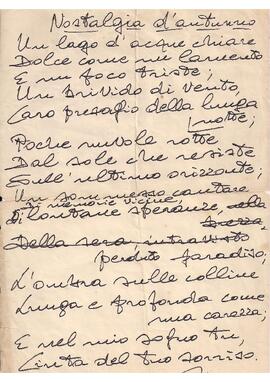 Nostalgia d'autunno
Un lago d'acque chiare
Dolce come un lamento
E un poco triste;
Un brivido di vento,
Caro presagio della lunga
notte;
Poche nuvole rotte
Dal sole che resiste
Sull'ultimo orizzonte;
Un sommesso cantare
di memorie vicine,
Di lontane speranze, alla
brezza
Della sera, intravisto
perduto paradiso;
L'ombra sulle colline
Lunga e profonda come
una carezza;
E nel mio sogno tu,
Cinta del tuo sorriso.